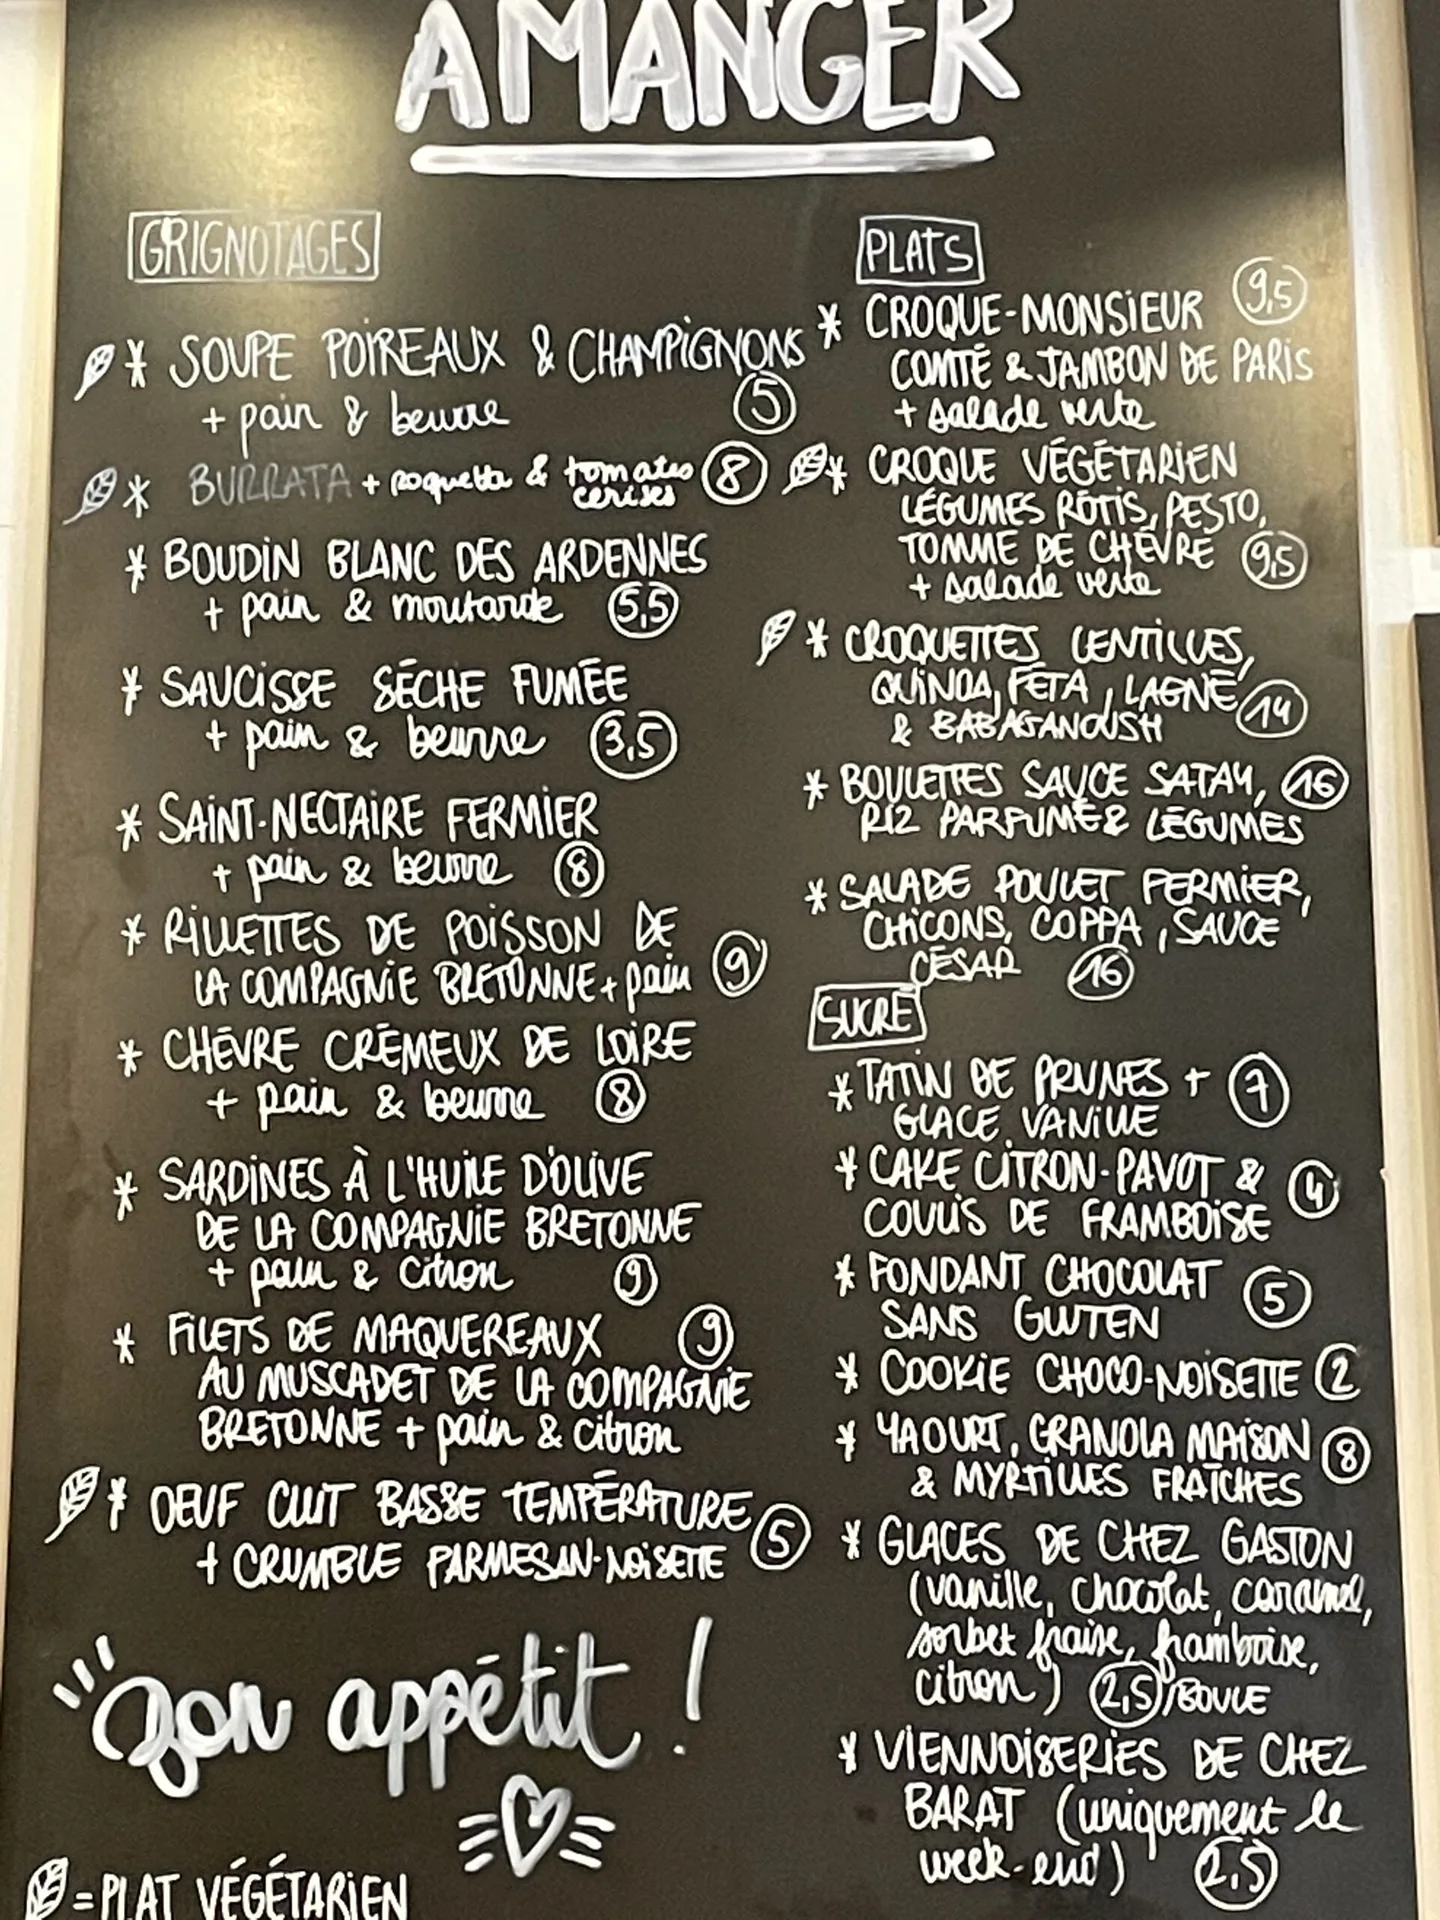 A MANGER
GRIGNOTAGES
* SOUPE POIREAUX & CHAMPIGNONS
+ pain & beurre 5
* BURRATA + roquette & tomates cerises 8
* BOUDIN BLANC DES ARDENNES
+ pain & moutarde 5,5
* SAUCISSE SÉCHE FUMÉE
+ pain & beurre 3,5
* SAINT-NECTAIRE FERMIER
+ pain & beurre 8
* RILLETTES DE POISSON DE
LA COMPAGNIE BRETONNE + pain 9
* CHÉVRE CRÉMEUX DE LOIRE
+ pain & beurre 8
* SARDINES À L'HUILE D'OLIVE
DE LA COMPAGNIE BRETONNE
+ pain & citron 9
* FILETS DE MAQUEREAUX 9
AU MUSCADET DE LA COMPAGNIE
BRETONNE + pain & citron
* OEUF CUIT BASSE TEMPÉRATURE
+ CRUMBLE PARMESAN-NOISETTE 5
Bon appétit !
= PLAT VÉGÉTARIEN
PLATS
* CROQUE-MONSIEUR 9,5
COMTÉ & JAMBON DE PARIS
+ salade verte
* CROQUE VÉGÉTARIEN
LÉGUMES RÔTIS, PESTO,
TOMME DE CHÉVRE 9,5
+ salade verte
* CROQUETTES LENTILLES,
QUINOA, FETA, LABNÉ 14
& BABAGANOUSH
* BOULETTES SAUCE SATAY, 16
RIZ PARFUMÉ & LÉGUMES
* SALADE POULET FERMIER,
CHICONS, COPPA, SAUCE
CÉSAR 16
SUCRÉ
* TATIN DE PRUNES + 7
GLACE VANILLE
* CAKE CITRON-PAVOT & 4
COULIS DE FRAMBOISE
* FONDANT CHOCOLAT 5
SANS GLUTEN
* COOKIE CHOCO-NOISETTE 2
* YAOURT, GRANOLA MAISON 8
& MYRTILLES FRAÎCHES
* GLACES DE CHEZ GASTON
(vanille, chocolat, caramel,
sorbet fraise, framboise,
citron) 2,5/BOULE
* VIENNOISERIES DE CHEZ
BARAT (uniquement le
week-end) 2,5